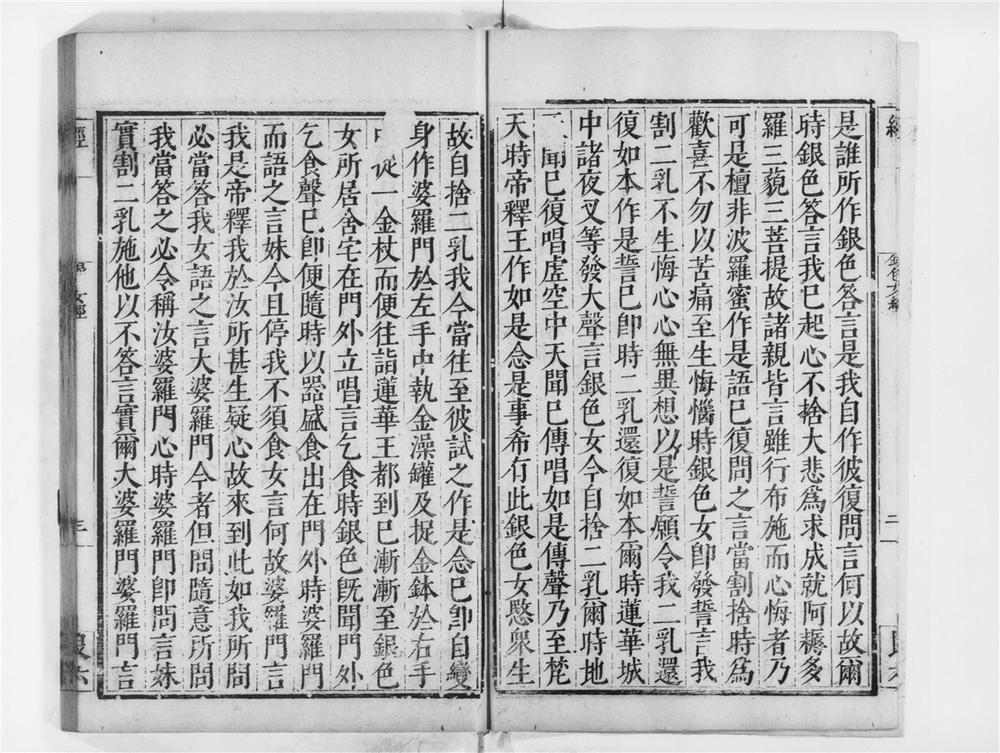 是誰所作銀色答言是我自作彼復問言何以故爾
時銀色答言我已起心不捨大悲爲求成就阿耨多
羅三藐三菩提故諸親皆言雖行布施而心悔者乃
可是檀非波羅蜜作是語已復問之言當割捨時爲
歡喜不勿以苦痛至生悔惱時銀色女卽發誓言我
割二乳不生悔心心無異想以是誓願令我二乳還
復如本作是誓已卽時二乳還復如本爾時蓮華城
中諸夜叉等發大聲言銀色女今自捨二乳爾時地
聞已復唱虛空中天聞已傳唱如是傳聲乃至梵
天時帝釋王作如是念是事希有此銀色女愍衆生
故自捨二乳我今當往至彼試之作是念已卽自變
身作婆羅門於左手中執金澡罐及捉金鉢於右手
從一金杖而便往詣蓮華王都到已漸漸至銀色
女所居舍宅在門外立唱言乞食時銀色旣聞門外
乞食聲已卽便隨時以器盛食出在門外時婆羅門
而語之言妹今且停我不須食女言何故婆羅門言
我是帝釋我於汝所甚生疑心故來到此如我所問
必當答我女語之言大婆羅門今者但問隨意所問
我當答之必令稱汝婆羅門心時婆羅門卽問言妹
實割二乳施他以不答言實爾大婆羅門婆羅門言
經
女經
三